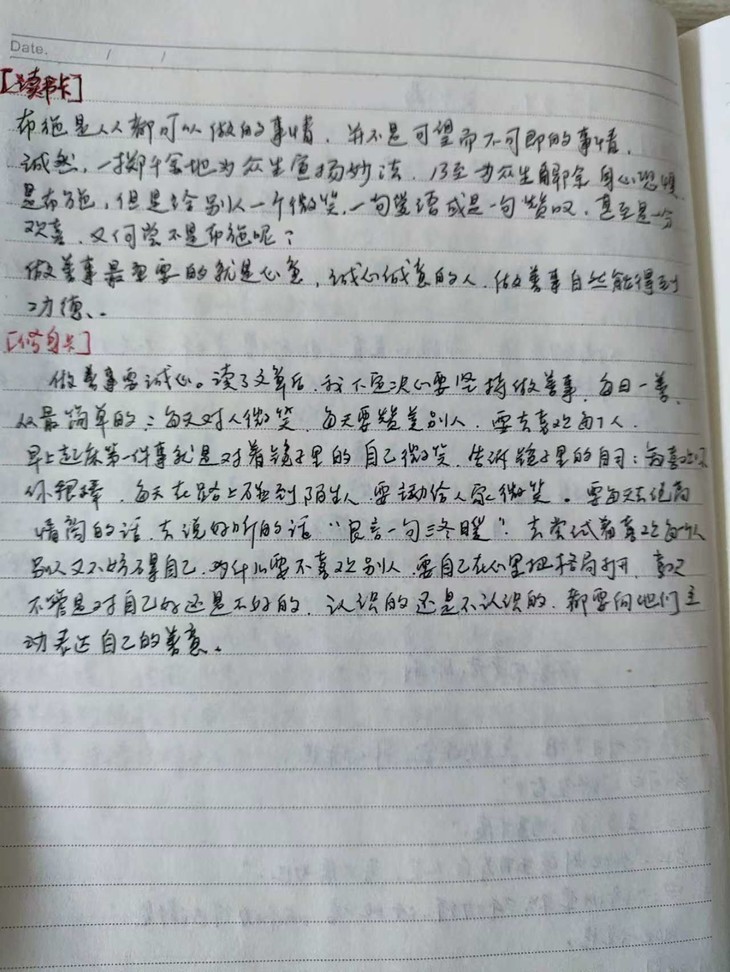 Date. / /
[读书卡]
布施是人人都可以做的事情，并不是可望而不可即的事情，
诚然，一掷千金地为众生宣扬妙法，乃至为众生解除身心恐惧
是布施，但是给别人一个微笑，一句爱语或是一句赞叹，甚至是一分
欢喜，又何尝不是布施呢？
做善事最重要的就是心意，诚心诚意的人，做善事自然能得到
功德、.
[修身卡]
做善事要诚心。读了文章后，我下定决心要坚持做善事，每日一善，
从最简单的：每天对人微笑，每天要赞美别人，要去喜欢每个人，
早上起床第一件事就是对着镜子里的自己微笑，告诉镜子里的自己：我喜欢你
你很棒，每天在路上碰到陌生人，要主动给人家微笑。要每天去说高
情商的话，去说好听的话“良言一句三冬暖”．去尝试着喜欢每个人
别人又不妨碍自己，为什么要不喜欢别人，要自己在心里把格局打开，
不管是对自己好还是不好的，认识的还是不认识的，都要向他们主
动表达自己的善意。